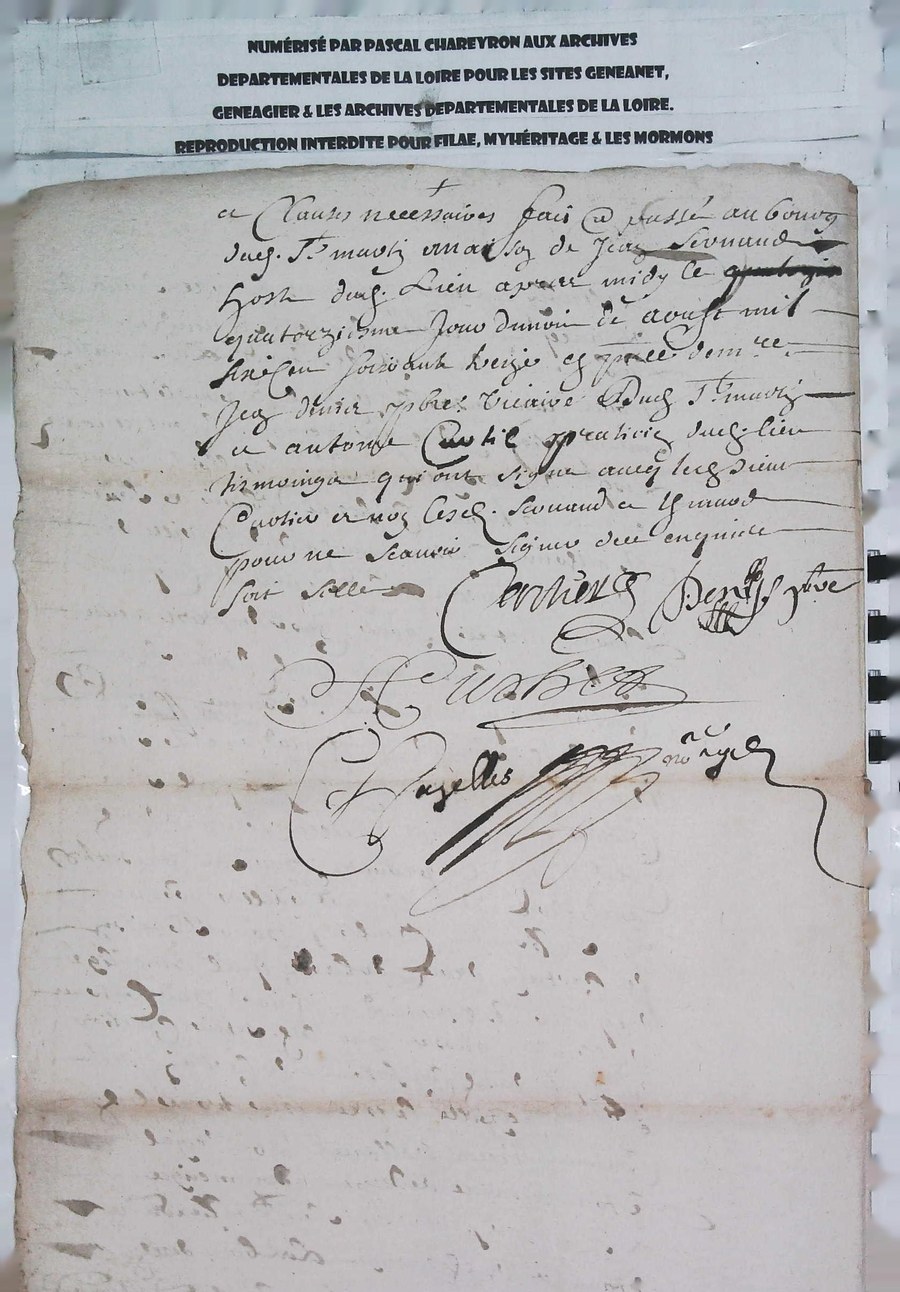 NUMÉRISÉ PAR PASCAL CHAREYRON AUX ARCHIVES
DEPARTEMENTALES DE LA LOIRE POUR LES SITES GENEANET,
GENEAGIER & LES ARCHIVES DEPARTEMENTALES DE LA LOIRE.
REPRODUCTION INTERDITE POUR FILAE, MYHÉRITAGE & LES MORMONS
et Clauses necessaires fait et passé au bourg
dud. St marti maison de Jean
hoste dud. Lieu apres midy le
quatorziesme Jour du mois de aoust mil
six Cen soixante treize en pnce de mre
Jean denis pbre Vicaire Dud St marti
et antoine praticie dud lieu
tesmoings qui ont signe avecq led sieur
et non lesd. et
pour ne scavoir signer de ce enquis
soit sellé
pbre
no re